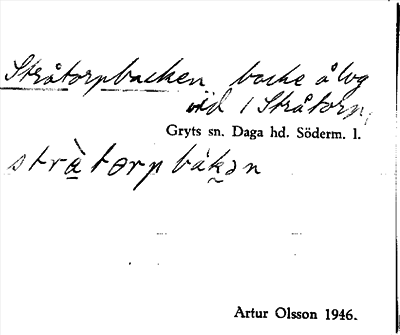 Stråtorpbacken, backe å lvg
vid 1 Stråtorp,
Gryts sn. Daga hd. Söderm. l.
stràtorpbakən
Artur Olsson 1946.